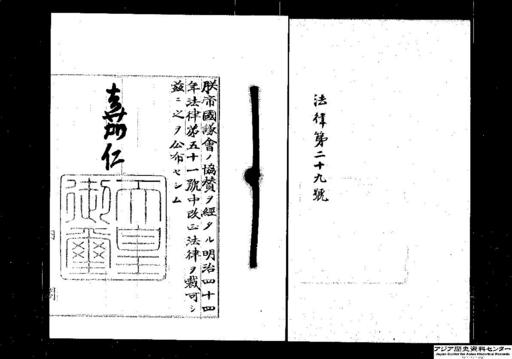 法律第二十九號
朕帝國議會ノ協賛ヲ經タル明治四十四
年法律第五十一號中改正法律ヲ裁可シ
茲ニ之ヲ公布セシム
嘉仁
天皇
御璽
内閣
アジア歴史資料センター
Japan Center for Asian Historical Records